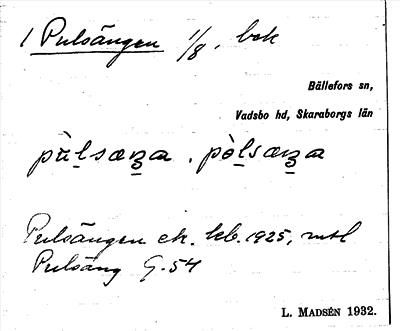 1 Pulsängen 1/8, bok
Bällefors sn,
Vadsbo hd, Skaraborgs län
Pulsängen ek. kb. 1925, mtl
Pulsäng G. 54
L. MADSÉN 1932.